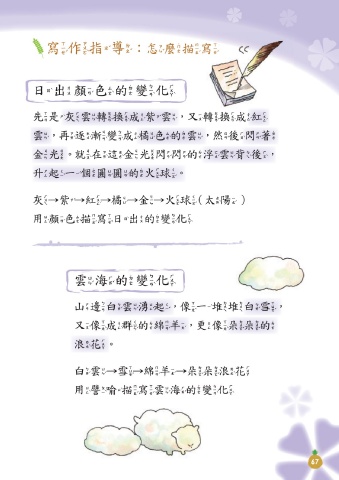 寫作指導：怎麼描寫
日出顏色的變化
先是灰雲轉換成紫雲，又轉換成紅
雲，再逐漸變成橘色的雲，然後閃著
金光。就在這金光閃閃的浮雲背後，
升起一個圓圓的火球。
灰→紫→紅→橘→金→火球（太陽）
用顏色描寫日出的變化
雲海的變化
山邊白雲湧起，像一堆堆白雪，
又像成群的綿羊，更像朵朵的
浪花。
白雲→雪→綿羊→朵朵浪花
用譬喻描寫雲海的變化
67